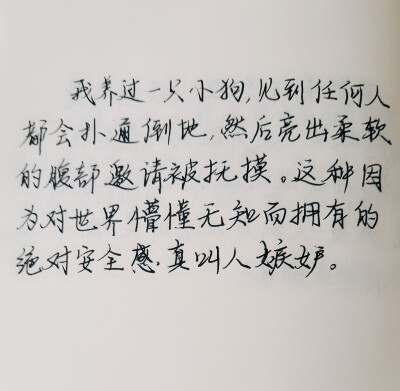 我养过一只小狗,见到任何人
都会扑通倒地,然后亮出柔软
的腹部邀请被抚摸。这种因
为对世界懵懂无知而拥有的
绝对安全感.真叫人嫉妒。